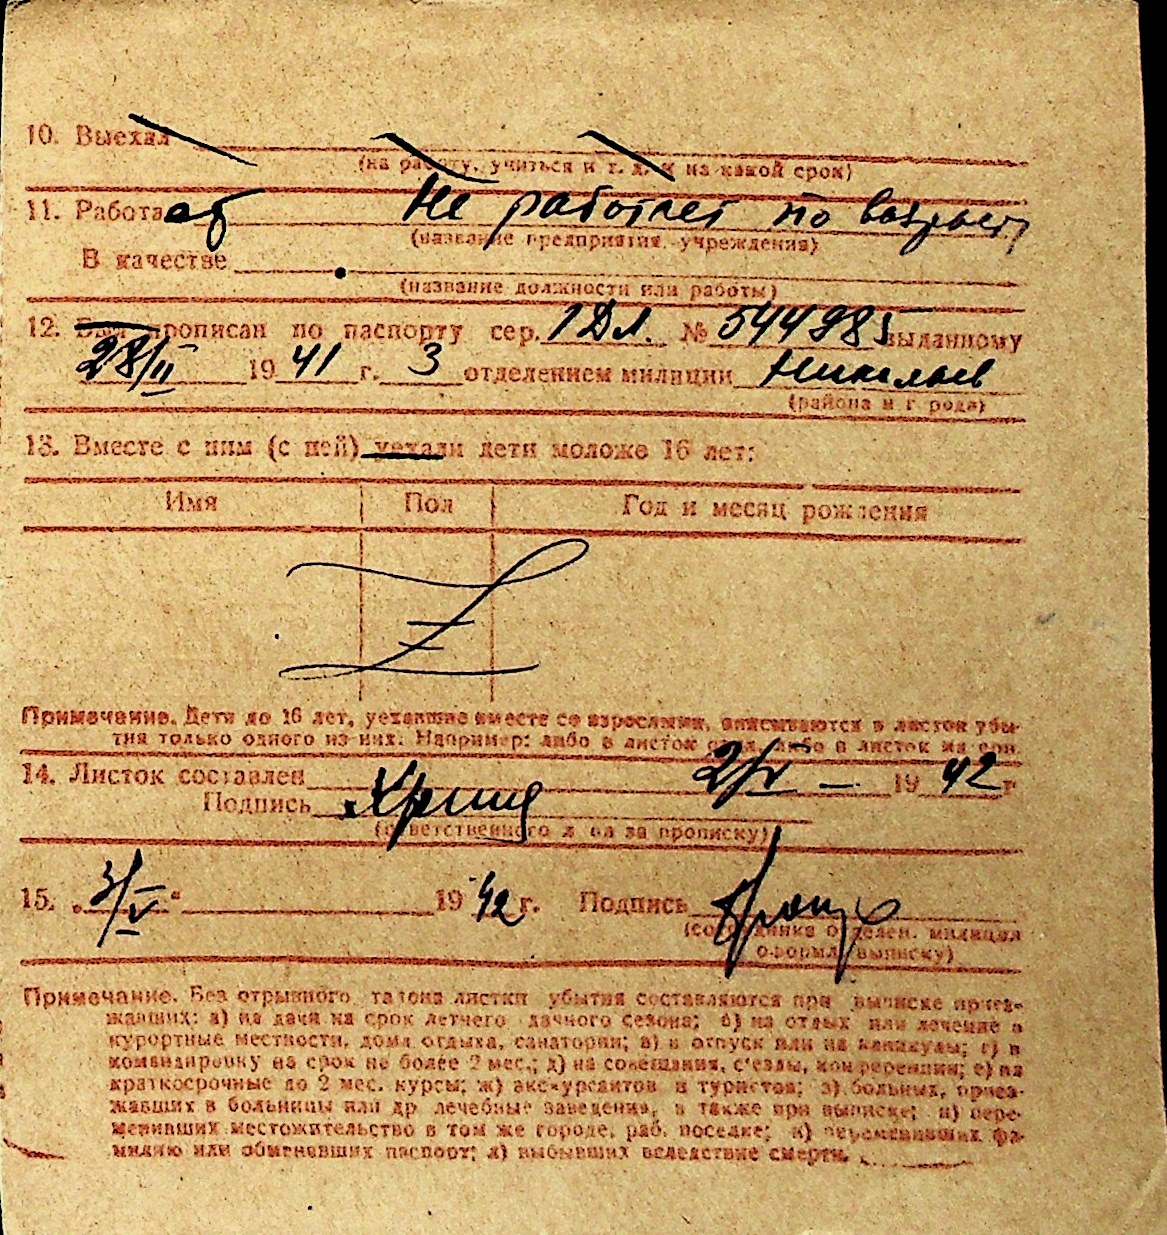 10. Выехал
(на работу, учиться и т. д. и на какой срок)
11. Работает Не работает по возраст
(название предприятия, учреждения)
В качестве
(название должности или работы)
12. Был прописан по паспорту сер. 1 Дл. № 544985 выданному
28/II 1941 г. 3 отделением милиции Николаев
(района и города)
13. Вместе с ним (с ней) уехали дети моложе 16 лет:
Имя Пол Год и месяц рождения
Примечание. Дети до 16 лет, уехавшие вместе со взрослыми, вписываются в листок убы-
тия только одного из них. Например: либо в листок отца, либо в листок матери.
14. Листок составлен 2/V — 1942 г
Подпись
(ответственного лица за прописку)
15. „3/V“ 1942 г. Подпись
(сотрудника отделен. милиции
оформл. выписку)
Примечание. Без отрывного талона листки убытия составляются при выписке приез-
жавших: а) на дачи на срок летнего дачного сезона; б) на отдых или лечение в
курортные местности, дома отдыха, санатории; в) в отпуск или на каникулы; г) в
командировку на срок не более 2 мес.; д) на совещания, с'езды, конференции; е) на
краткосрочные до 2 мес. курсы; ж) экскурсантов и туристов; з) больных, приез-
жавших в больницы или др. лечебные заведения, а также при выписке; и) пере-
менивших местожительство в том же городе, раб. поселке; к) переменивших фа-
милию или обменявших паспорт; л) выбывших вследствие смерти.